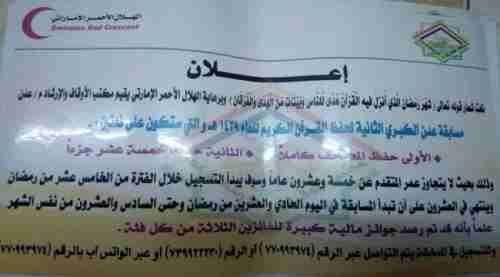 الهلال الأحمر الإماراتي
Emirates Red Crescent
إعــلان
تحت شعار قوله تعالى ( شهر رمضان الذي أنزل فيه القرآن هدى للناس وبينات من الهدى والفرقان ) وبرعاية الهلال الأحمر الإماراتي يقيم مكتب الأوقاف والإرشاد م / عدن
مسابقة عدن الكبرى الثانية لحفظ القرآن الكريم للعام ١٤٣٨ هـ والتي ستكون على فئتين :-
الأولى حفظ المصحف كاملاً الثانية حفظ خمسة عشر جزءاً
وذلك بحيث لا يتجاوز عمر المتقدم عن خمسة وعشرون عاماً وسوف يبدأ التسجيل خلال الفترة من الخامس عشر من رمضان
وينتهي في العشرون على أن تبدأ المسابقة في اليوم الحادي والعشرين من رمضان وحتى السادس والعشرون من نفس الشهر
علماً بأنه قد تم رصد جوائز مالية كبيرة للفائزين الثلاثة من كل فئة .
وللتسجيل في المسابقة يتم التواصل عبر الرقم (٧٧٠٩٩٣٩٧٤) أو الرقم (٧٣٩٩٢٢٢٣٠) أو عبر الواتس آب بالرقم (٧٧٠٩٩٣٩٧٤)